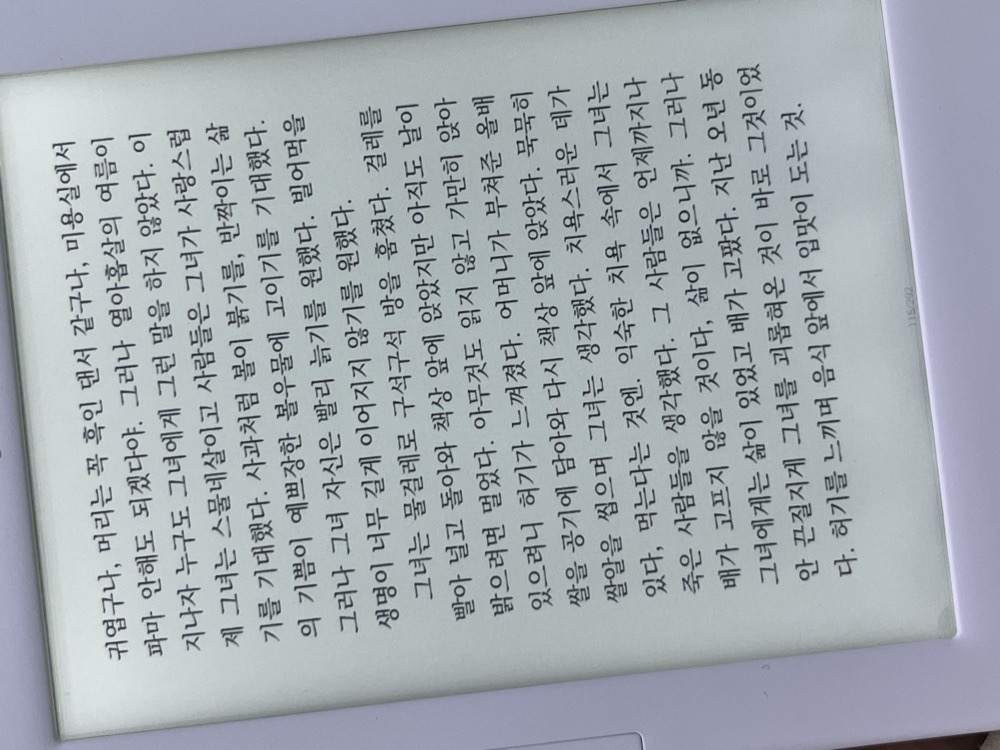 귀엽구나, 머리는 꼭 흑인 댄서 같구나, 미용실에서
파마 안해도 되겠다야. 그러나 열아홉살의 여름이
지나자 누구도 그녀에게 그런 말을 하지 않았다. 이
제 그녀는 스물네살이고 사람들은 그녀가 사랑스럽
기를 기대했다. 사과처럼 볼이 붉기를, 반짝이는 삶
의 기쁨이 예쁘장한 볼우물에 고이기를 기대했다.
그러나 그녀 자신은 빨리 늙기를 원했다. 빌어먹을
생명이 너무 길게 이어지지 않기를 원했다.
그녀는 물걸레로 구석구석 방을 훔쳤다. 걸레를
빨아 널고 돌아와 책상 앞에 앉았지만 아직도 날이
밝으려면 멀었다. 아무것도 읽지 않고 가만히 앉아
있으려니 허기가 느껴졌다. 어머니가 부쳐준 올배
쌀을 공기에 담아와 다시 책상 앞에 앉았다. 묵묵히
쌀알을 씹으며 그녀는 생각했다. 치욕스러운 데가
있다, 먹는다는 것엔. 익숙한 치욕 속에서 그녀는
죽은 사람들을 생각했다. 그 사람들은 언제까지나
배가 고프지 않을 것이다, 삶이 없으니까. 그러나
그녀에게는 삶이 있었고 배가 고팠다. 지난 오년 동
안 끈질기게 그녀를 괴롭혀온 것이 바로 그것이었
다. 허기를 느끼며 음식 앞에서 입맛이 도는 것.
115/202